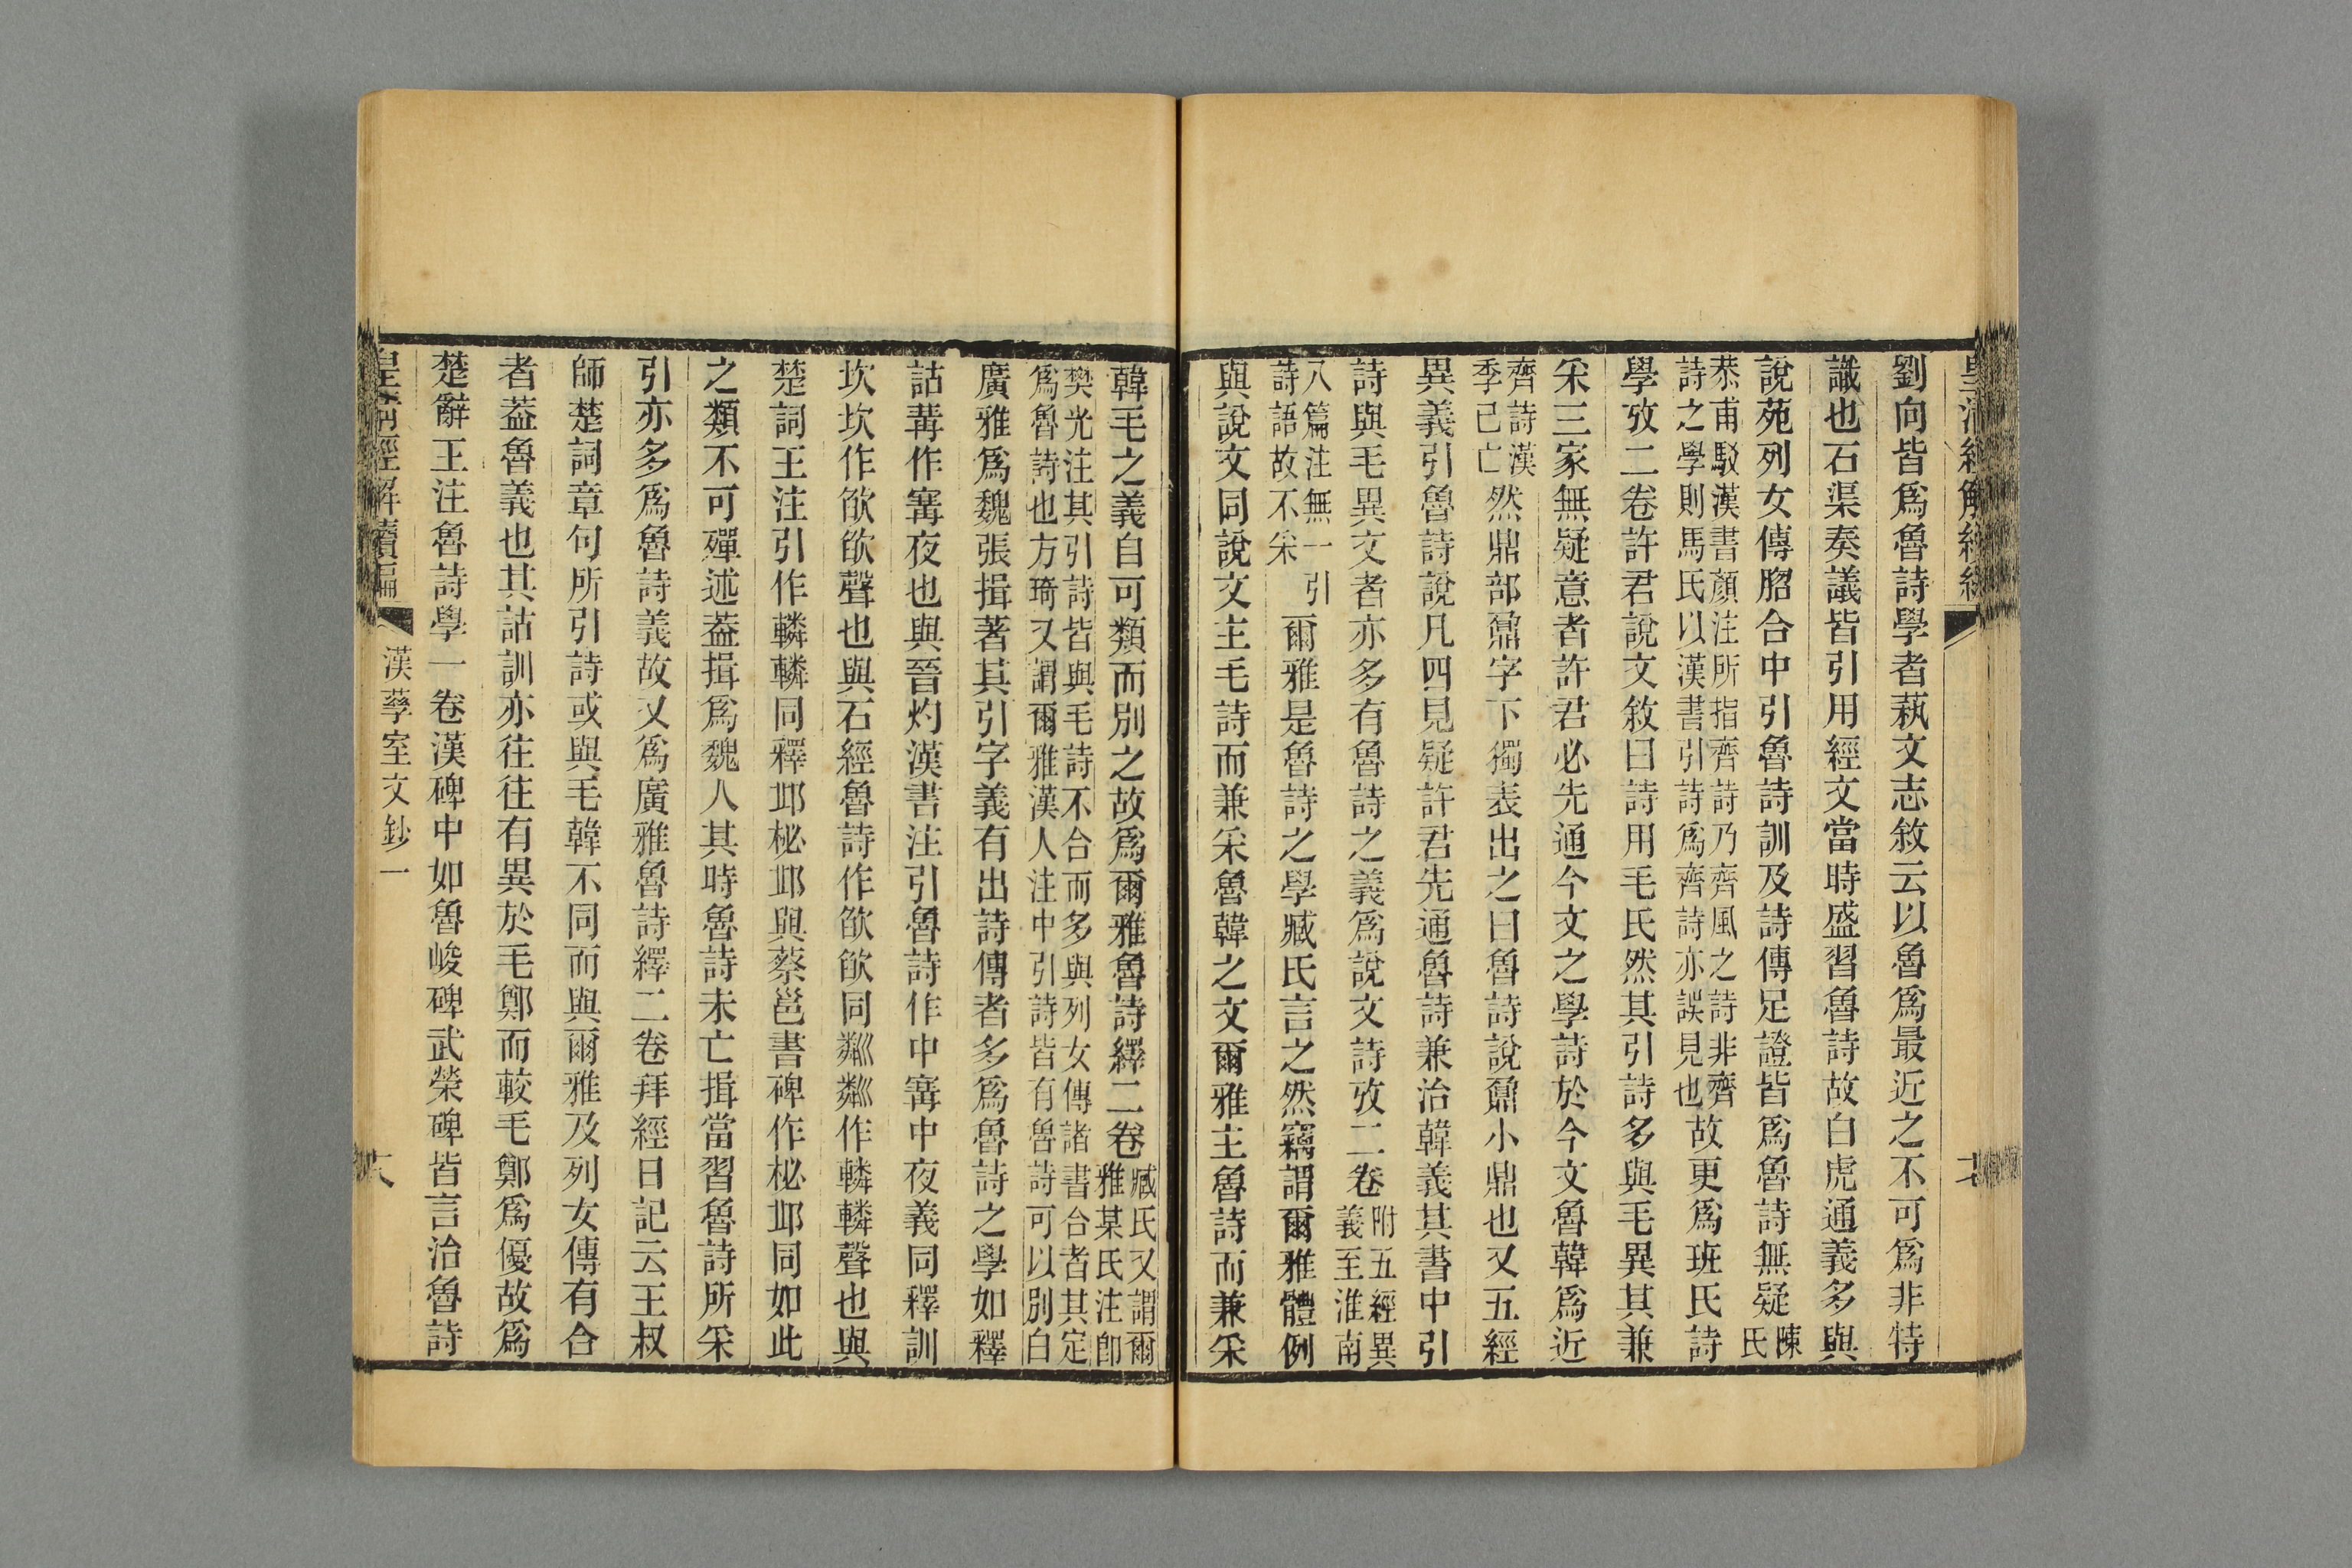 皇清經解續編
劉向皆爲魯詩學者蓺文志敘云以魯爲最近之不可爲非特
識也石渠奏議皆引用經文當時盛習魯詩故白虎通義多與
說苑列女傳脗合中引魯詩訓及詩傳足證皆爲魯詩無疑陳氏
恭甫駁漢書顏注所指齊詩乃齊風之詩非齊
詩之學則馬氏以漢書引詩爲齊詩亦誤見也故更爲班氏詩
學攷二卷許君說文敘曰詩用毛氏然其引詩多與毛異其兼
采三家無疑意者許君必先通今文之學詩於今文魯韓爲近
齊詩漢
季已亡然鼎部鼐字下獨表出之曰魯詩說鼐小鼎也又五經
異義引魯詩說凡四見疑許君先通魯詩兼治韓義其書中引
詩與毛異文者亦多有魯詩之義爲說文詩攷二卷附五經異
義至淮南
八篇注無一引
詩語故不采爾雅是魯詩之學臧氏言之然竊謂爾雅體例
與說文同說文主毛詩而兼采魯韓之文爾雅主魯詩而兼采
韓毛之義自可類而別之故爲爾雅魯詩繹二卷臧氏又謂爾
雅某氏注卽
樊光注其引詩皆與毛詩不合而多與列女傳諸書合者其定
爲魯詩也方琦又謂爾雅漢人注中引詩皆有魯詩可以別白
廣雅爲魏張揖著其引字義有出詩傳者多爲魯詩之學如釋
詁冓作寯夜也與晉灼漢書注引魯詩作中冓中夜義同釋訓
坎坎作欿欿聲也與石經魯詩作欿欿同粼粼作轔轔聲也與
楚詞王注引作轔轔同釋邺柲邺與蔡邕書碑作柲邺同如此
之類不可殫述葢揖爲魏人其時魯詩未亡揖當習魯詩所采
引亦多爲魯詩義故又爲廣雅魯詩繹二卷拜經日記云王叔
師楚詞章句所引詩或與毛韓不同而與爾雅及列女傳有合
者葢魯義也其詁訓亦往往有異於毛鄭而較毛鄭爲優故爲
楚辭王注魯詩學一卷漢碑中如魯峻碑武榮碑皆言治魯詩
皇清經解續編 漢孳室文鈔一 大